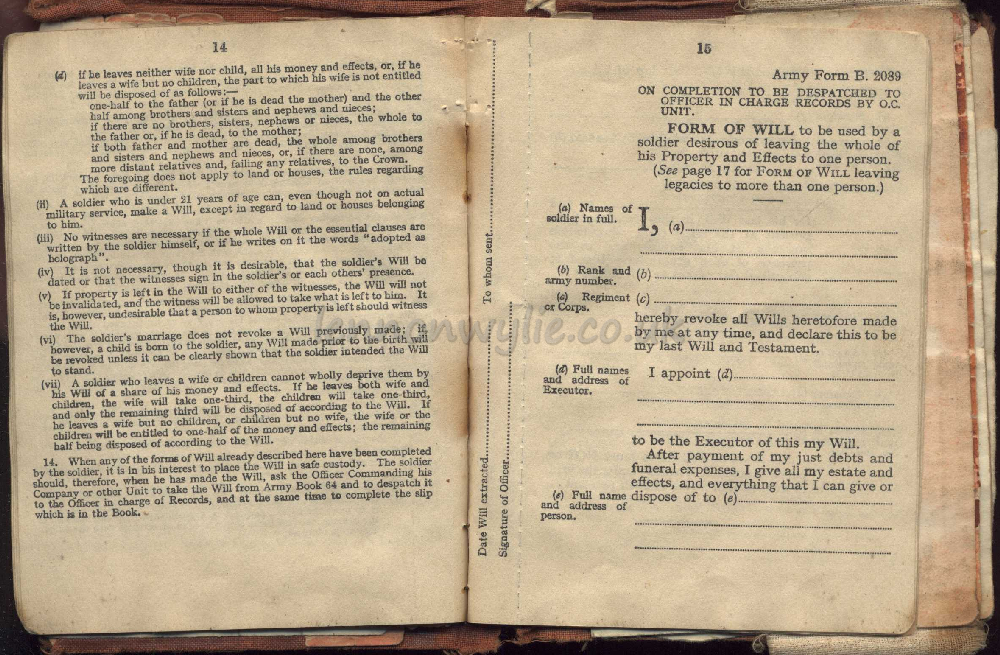 14
(d) if he leaves neither wife nor child, all his money and effects, or, if he
leaves a wife but no children, the part to which his wife is not entitled
will be disposed of as follows:—
one-half to the father (or if he is dead the mother) and the other
half among brothers and sisters and nephews and nieces;
if there are no brothers, sisters, nephews or nieces, the whole to
the father or, if he is dead, to the mother;
if both father and mother are dead, the whole among brothers
and sisters and nephews and nieces, or, if there are none, among
more distant relatives and, failing any relatives, to the Crown.
The foregoing does not apply to land or houses, the rules regarding
which are different.
(ii) A soldier who is under 21 years of age can, even though not on actual
military service, make a Will, except in regard to land or houses belonging
to him.
(iii) No witnesses are necessary if the whole Will or the essential clauses are
written by the soldier himself, or if he writes on it the words "adopted as
holograph".
(iv) It is not necessary, though it is desirable, that the soldier's Will be
dated or that the witnesses sign in the soldier's or each others' presence.
(v) If property is left in the Will to either of the witnesses, the Will will not
be invalidated, and the witness will be allowed to take what is left to him. It
is, however, undesirable that a person to whom property is left should witness
the Will.
(vi) The soldier's marriage does not revoke a Will previously made; if,
however, a child is born to the soldier, any Will made prior to the birth will
be revoked unless it can be clearly shown that the soldier intended the Will
to stand.
(vii) A soldier who leaves a wife or children cannot wholly deprive them by
his Will of a share of his money and effects. If he leaves both wife and
children, the wife will take one-third, the children will take one-third,
and only the remaining third will be disposed of according to the Will. If
he leaves a wife but no children, or children but no wife, the wife or the
children will be entitled to one-half of the money and effects; the remaining
half being disposed of according to the Will.
14. When any of the forms of Will already described here have been completed
by the soldier, it is in his interest to place the Will in safe custody. The soldier
should, therefore, when he has made the Will, ask the Officer Commanding his
Company or other Unit to take the Will from Army Book 64 and to despatch it
to the Officer in charge of Records, and at the same time to complete the slip
which is in the Book.
Date Will extracted To whom sent
Signature of Officer
15
Army Form B. 2089
ON COMPLETION TO BE DESPATCHED TO
OFFICER IN CHARGE RECORDS BY O.C.
UNIT.
FORM OF WILL to be used by a
soldier desirous of leaving the whole of
his Property and Effects to one person.
(See page 17 for FORM OF WILL leaving
legacies to more than one person.)
(a) Names of
soldier in full.
I, (a)
(b) Rank and
army number.
(b)
(c) Regiment
or Corps.
(c)
hereby revoke all Wills heretofore made
by me at any time, and declare this to be
my last Will and Testament.
(d) Full names
and address of
Executor.
I appoint (d)
to be the Executor of this my Will.
After payment of my just debts and
funeral expenses, I give all my estate and
effects, and everything that I can give or
dispose of to (e)
(e) Full name
and address of
person.